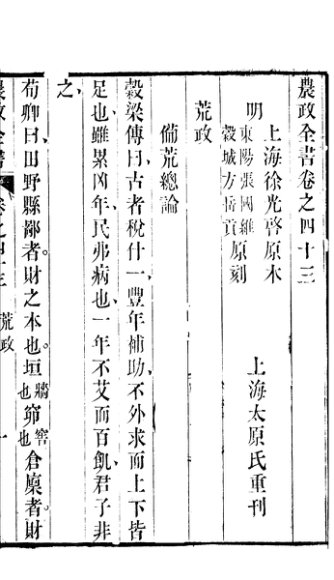 農政全書卷之四十三
上海徐光啓原本
明
東陽張國維
穀城方岳貢
原刻
上海太原氏重刊
荒政
備荒總論
穀梁傳曰古者稅什一豐年補助不外求而上下皆
足也雖累凶年民弗病也一年不艾而百飢君子非
之
荀卿曰田野縣鄙者財之本也垣牆也窌窖也倉廩者財
農政全書 卷之四十三 荒政 一